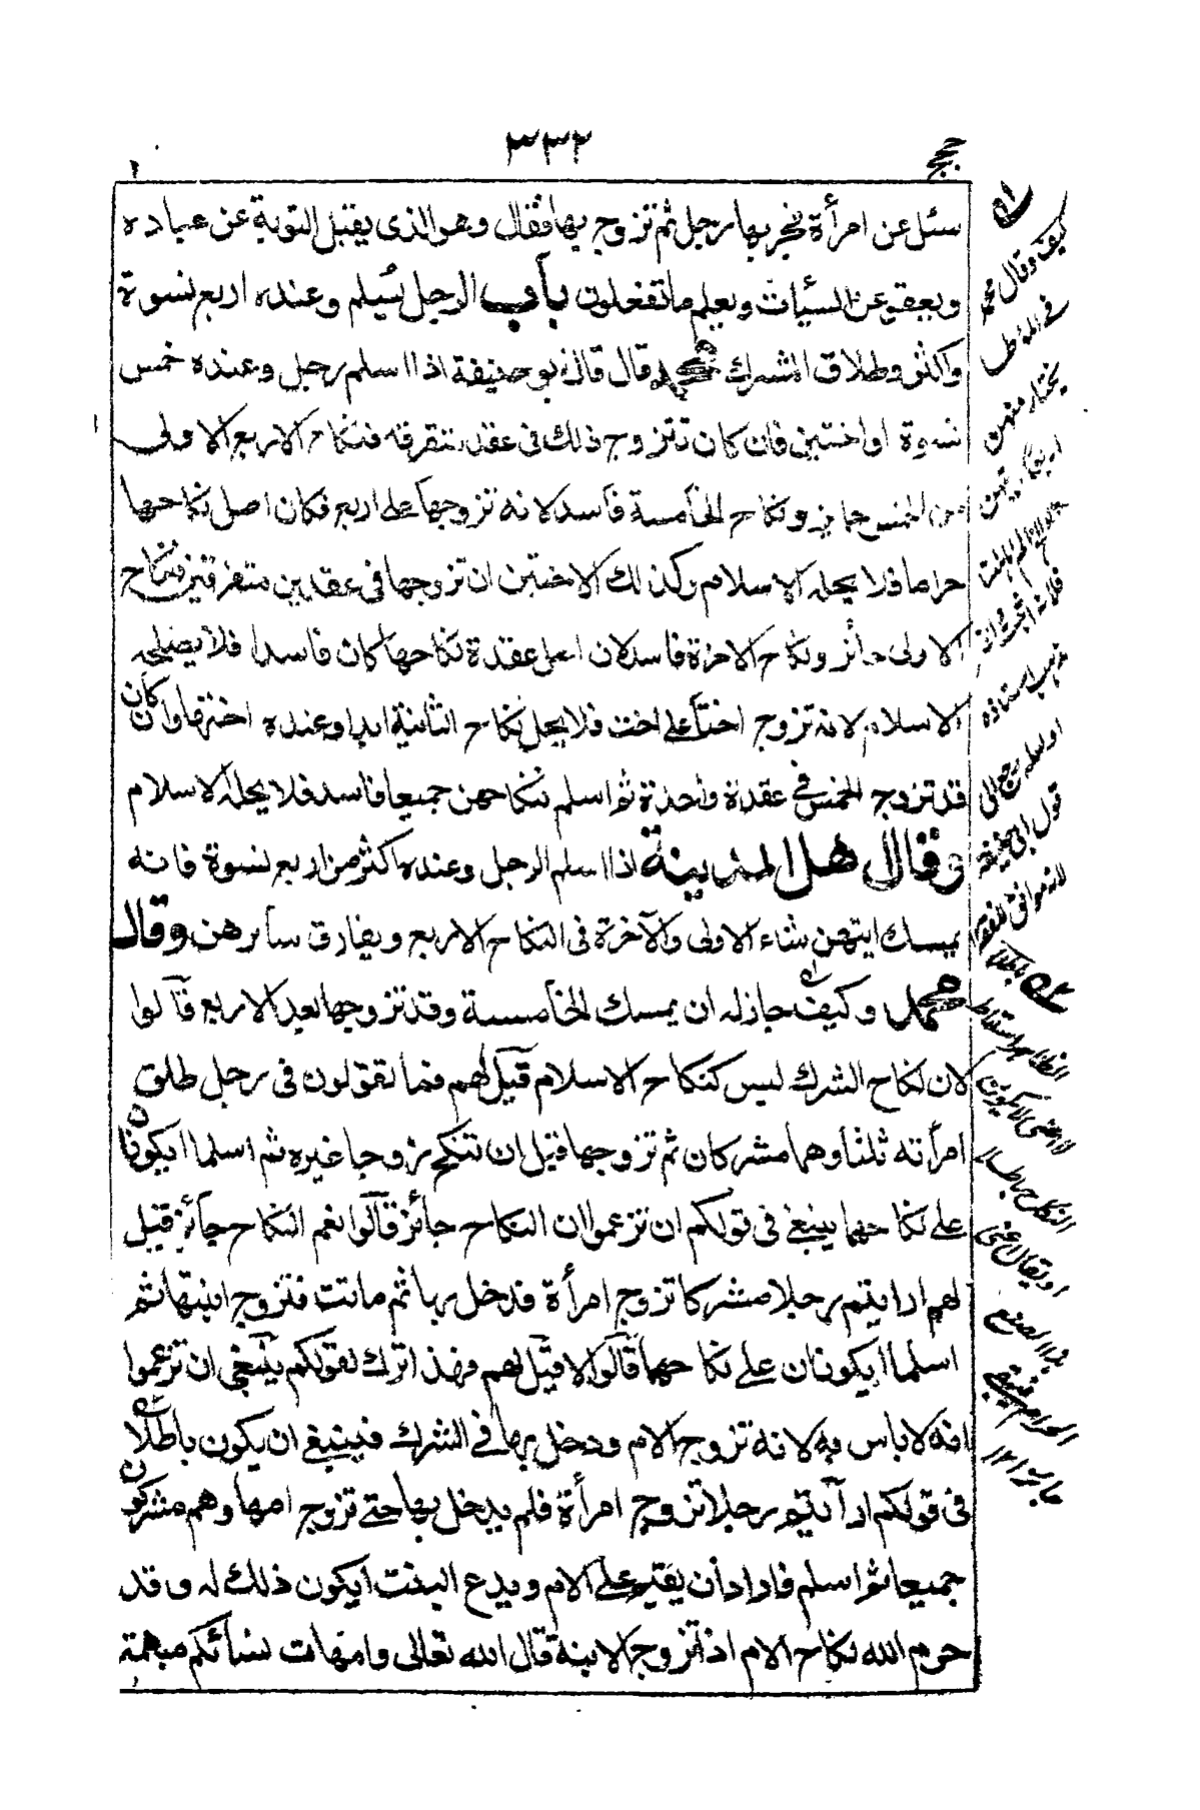 ٣٣٢
حجج
سئل عن امرأة فجر بها رجل ثم تزوج بها فقال وهو الذى يقبل التوبة عن عباده
ويعفو عن السيأت ويعلم ما تفعلون باب الرجل يسلم وعنده اربع نسوة
واكثر وطلاق المشرك محمد قال قال ابو حنيفة اذا اسلم رجل وعنده خمس
نسوة او اختين فان كان تزوج ذلك فى عقد متفرقة فنكاح الاربع الاولى
من الخمس جايز ونكاح الخامسة فاسد لانه تزوجها على اربع فكان اصل نكاحها
حراما فلا يحله الاسلام وكذلك الاختين ان تزوجها فى عقدين متفرقين فنكاح
الاولى جائز ونكاح الاخرة فاسد لان اصل عقدة نكاحها كان فاسدا فلا يصلحه
الاسلام لانه تزوج اختا على اخت فلا يحل نكاح الثانية ابدا وعنده اختها وان كان
قد تزوج الخمس فى عقدة واحدة ثم اسلم فنكاحهن جميعا فاسد فلا يحله الاسلام
وقال اهل المدينة اذا اسلم الرجل وعنده اكثر من اربع نسوة فانه
يمسك ايتهن شاء الاولى والآخرة فى النكاح الاربع ويفارق سائرهن وقال
محمد وكيف جاز له ان يمسك الخامسة وقد تزوجها بعد الاربع قالوا
لان نكاح الشرك ليس كنكاح الاسلام قيل لهم فما تقولون فى رجل طلق
امرأته ثلثا وهما مشركان ثم تزوجها قبل ان تنكح زوجا غيره ثم اسلما ايكونان
على نكاحهما ينبغى فى قولكم ان تزعموا ان النكاح جائز قالوا نعم النكاح جائز قيل
لهم ارايتم رجلا مشركا تزوج امرأة فدخل بها ثم ماتت فتزوج ابنتها ثم
اسلما ايكونان على نكاحهما قالوا لا قيل لهم فهذا ترك لقولكم ينبغى ان تزعموا
انه لا باس به لانه تزوج الام ودخل بها فى الشرك فينبغى ان يكون باطلا
فى قولكم ارآيتم رجلا تزوج امرأة فلم يدخل بها حتى تزوج امها وهم مشركون
جميعا ثم اسلم فاراد ان يقيم على الام ويدع البنت ايكون ذلك له وقد
حرم الله نكاح الام اذا تزوج الابنة قال الله تعالى وامهات نسائكم مبهمة
كيف وقال محمد
فى المؤطا
يختار منهن
مذهب استاذه
او لعله رجع الى
قول ابى حنيفة
لانه موافق للفقه
النكاح باطلا
او يقال